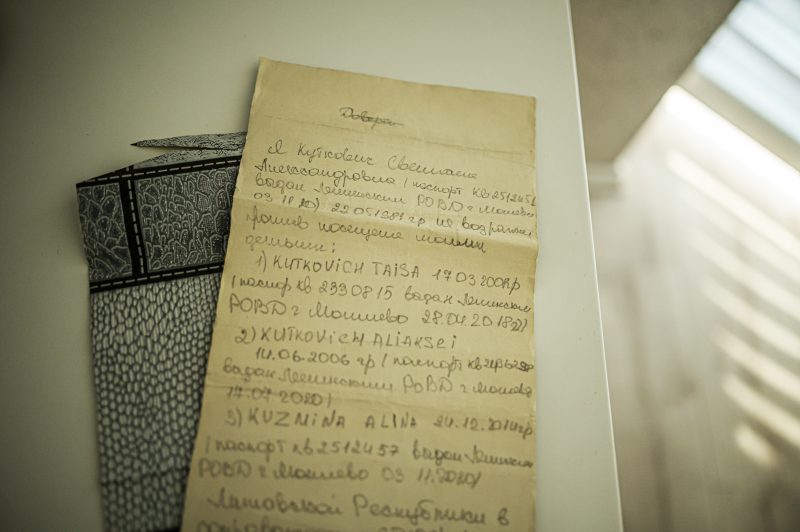 Доверен
Я Куткович Светлана
Александровна (паспорт КВ2512451
выдан Ленинским РОВД г Могилево
03 11 20) 22 05 1981 гр не возра
против посещене моими
детьми:
1) KUTKOVICH TAISA 17 03 2008гр
(паспор КВ 2330815 выдан Ленинским
РОВД г Могилево 28.04.2018г)
2) KUTKOVICH ALIAKSEI
14.06.2006 гр (паспорт КВ
выдан Ленинским РОВД г Могилев
17.07 2020)
3) KUZMINA ALINA 24.12.2014гр
(паспорт КВ2512457 выдан Ленинск
РОВД г Могилево 03 11.2020)
Литовской Республики в